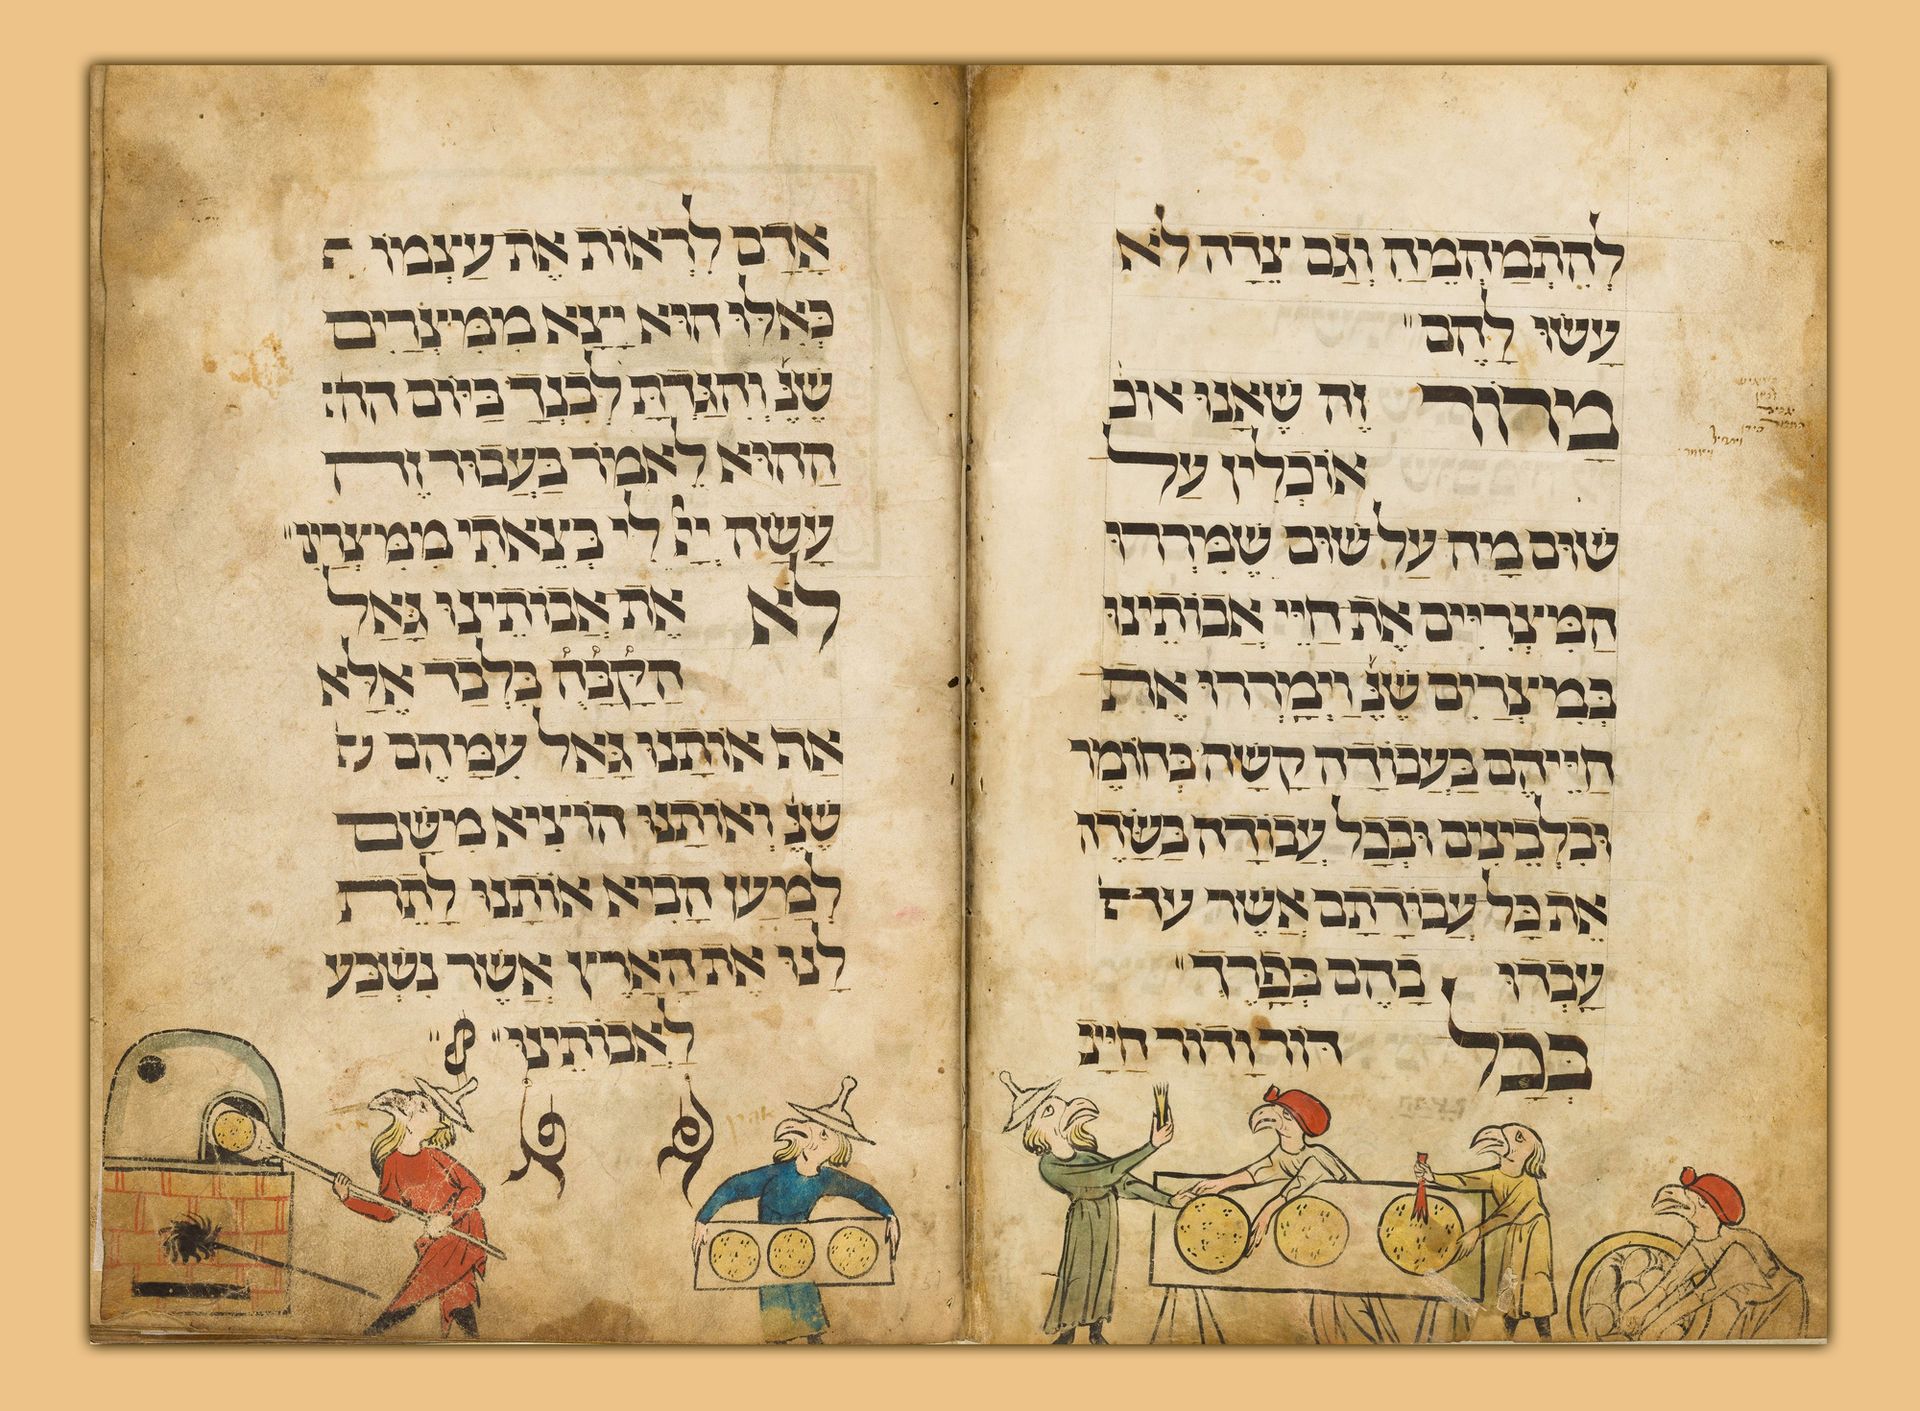 לְהִתְמַהְמֵהַּ וְגַם צֵדָה לֹא
עָשׂוּ לָהֶם"
מָרוֹר זֶה שֶׁאָנוּ אוכ
אוֹכְלִין עַל
שׁוּם מַה עַל שׁוּם שֶׁמֵּרְרוּ
הַמִּצְרִיִּים אֶת חַיֵּי אֲבוֹתֵינוּ
בְּמִצְרַיִם שֶׁנֶּ וַיְמָרְרוּ אֶת
חַיֵּיהֶם בַּעֲבוֹדָה קָשָׁה בְּחוֹמֶר
וּבִלְבֵינִים וּבְכָל עֲבוֹדָה בַּשָּׂדֶה
אֵת כָּל עֲבוֹדָתָם אֲשֶׁר
עָבְדוּ בָהֶם בְּפָרֶךְ"
בְּכָל דּוֹר וָדוֹר חַיָּיב
אָדָם לִרְאוֹת אֶת עַצְמוֹ
כְּאִלּוּ הוּא יָצָא מִמִּצְרַיִם
שֶׁנֶּ וְהִגַּדְתָּ לְבִנְךָ בַּיּוֹם הה
הַהוּא לֵאמֹר בַּעֲבוּר זֶה
עָשָׂה יְיָ לִי בְּצֵאתִי מִמִּצְרָיִם"
לֹא אֶת אֲבוֹתֵינוּ גָּאַל
הַקָּבָּה בִּלְבַד אֶלָּא
אַת אוֹתָנוּ גָּאַל עִמָּהֶם
שֶׁנֶּ וְאוֹתָנוּ הוֹצִיא מִשָּׁם
לְמַעַן הָבִיא אוֹתָנוּ לָתֵת
לָנוּ אֶת הָאָרֶץ אֲשֶׁר נִשְׁבַּע
לַאֲבוֹתֵינוּ"